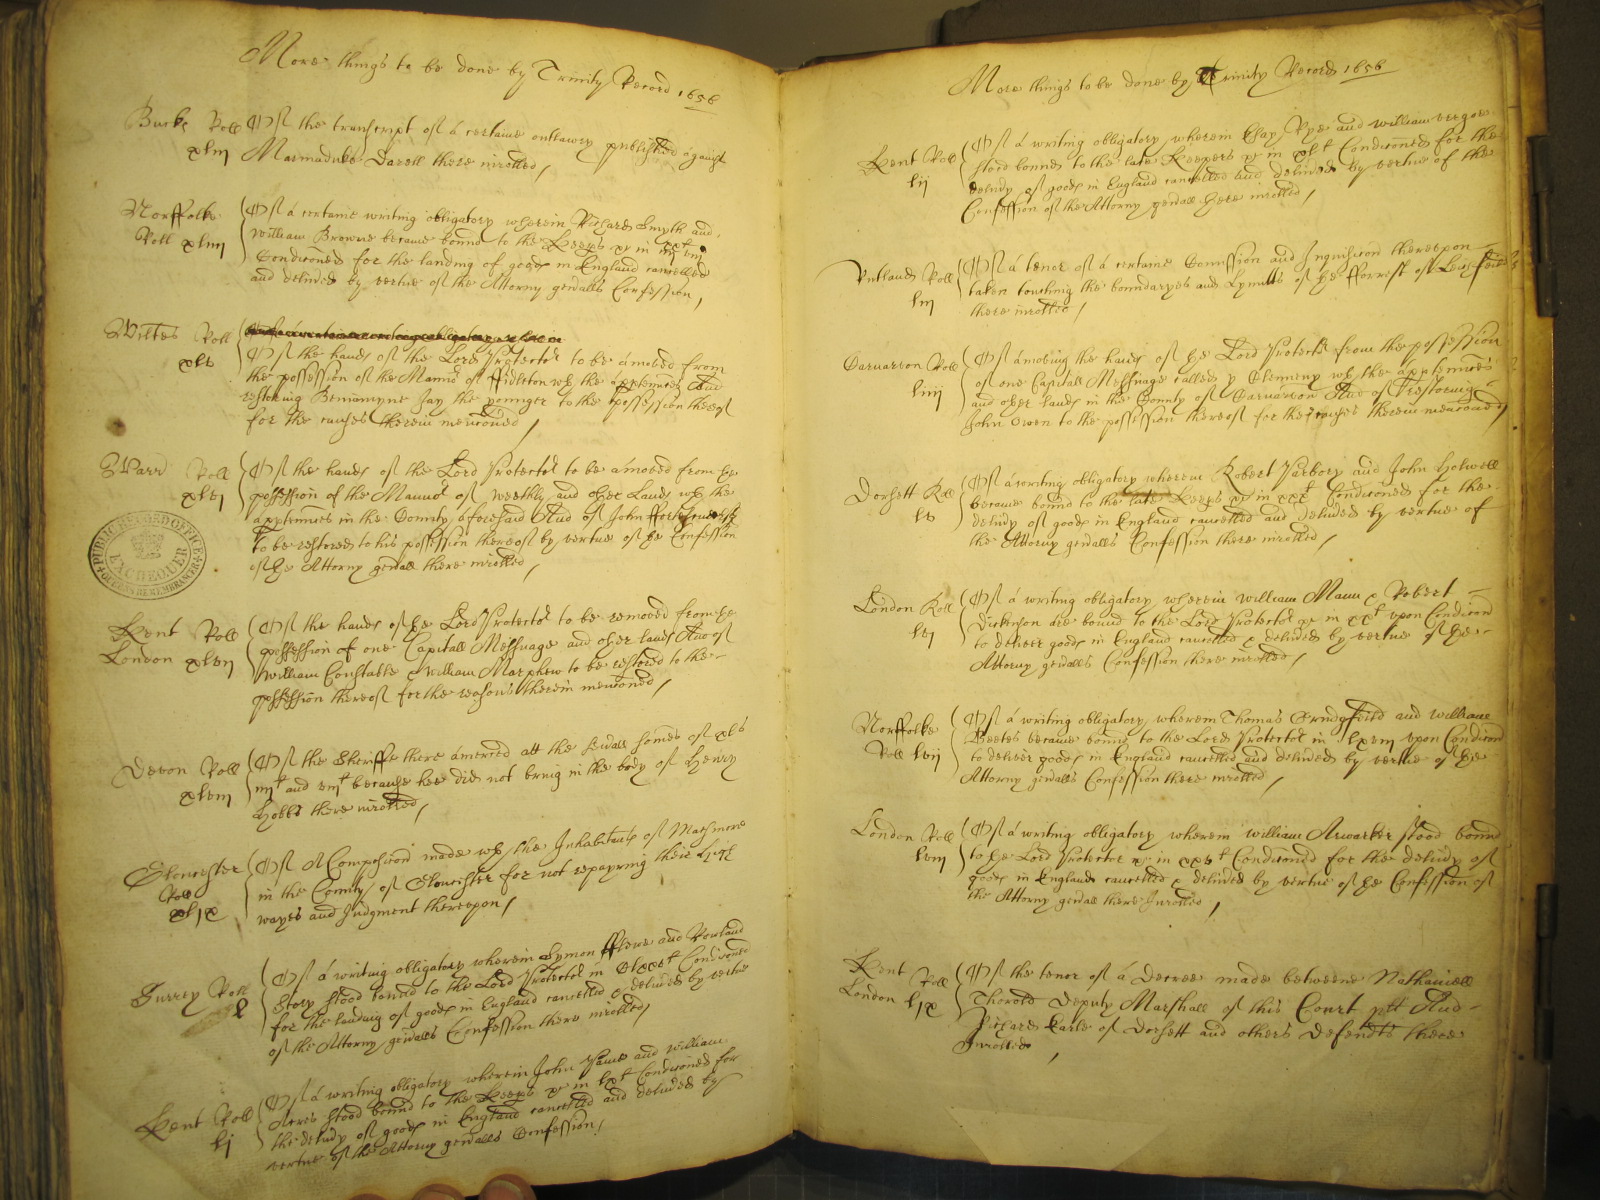 More things to be done by Trinity Record 1656
Bucks Roll xliij
Of the transcript of a certaine outlawry published against
Marmaduke Darell there inrolled
Norffolke Roll xliiij
Of a certaine writing obligatory wherein Richard Smyth and
William Browne became bound to the Keeps &c in
Condiconed for the landing of goods in England cancelled
and delivded by vertue of the Attorny gendalls Confession
Wiltes Roll xlv
Of the hands of the Lord Protector to be amoved from
the possession of the Mannor of Fidleton wth the apptenncs And
restoring Beniamyne Jay the younger to the possession thereof
for the causes therein menconed
Warr Roll xlvj
Of the hands of the Lord Protector to be amoved from the
possession of the Mannor of and other Lands wth the
apptenncs in the County aforesaid And of John
to be restored to his possession thereof by vertue of the Confession
of the Attorny gendall there inrolled
PUBLIC RECORD OFFICE
EXCHEQUER
QUEEN'S REMEMBRANCER
Kent London Roll xlvij
Of the hands of the Lord Protector to be removed from the
possession of one Capitall Messuage and other lands And of
William Constable & William Marphew to be restored to the
possession thereof for the reasons therein menconed
Devon Roll xlviij
Of the Sheriffe there amerced att the sevall somes of xls
iiijl and viijl because hee did not bring in the body of Henry
Hobbs there inrolled
Gloucester Roll xlix
Of A Composicon made wth the Inhabitants of Marsmore
in the County of Gloucester for not repayring their high
wayes and Judgment thereupon
Surrey Roll l
Of a writing obligatory wherein Symon fflewe and Rowland
Story stood bound to the Lord Protector in Condiconed
for the landing of goods in England cancelled & delivded by vertue
of the Attorny gendalls Confession there inrolled
Kent Roll lj
Of a writing obligatory wherein John and William
Acres stood bound to the Keeps &c in lxl Condiconed for
the delivdy of goods in England cancelled and delivded by
vertue of the Attorny gendalls Confession
More things to be done by Trinity Record 1656
Kent Roll lij
Of a writing obligatory wherein Rye and William
stood bound to the late Keepers &c in xll Condiconed for the
delivdy of goods in England cancelled and delivded by vertue of the
Confession of the Attorny gendall there inrolled
Rutland Roll liij
Of a tenor of a certaine Comission and Inquisicon thereupon
taken touching the boundaryes and Lymitts of the fforrest of Leighfeild
there inrolled
Carnarvon Roll liiij
Of amoving the hands of the Lord Protector from the possession
of one Capitall Messuage called y Clenneny wth the apptenncs
and other lands in the County of Carnarvon And of restoring
John Owen to the possession thereof for the causes therein menconed
Dorsett Roll lv
Of a writing obligatory wherein Robert Yarbory and John Holwell
became bound to the late Keeps &c in xxxl Condiconed for the
delivdy of goods in England cancelled and delivded by vertue of
the Attorny gendalls Confession there inrolled
London Roll lvj
Of a writing obligatory wherein William Mann & Robert
Dickenson are bound to the Lord Protector &c in xxl upon Condicon
to deliver goods in England cancelled & delivded by vertue of the
Attorny gendalls Confession there inrolled
Norffolke Roll lvij
Of a writing obligatory wherein Thomas and William
Beetes became bound to the Lord Protector in lxviij upon Condicon
to deliver goods in England cancelled and delivded by vertue of the
Attorny gendalls Confession there inrolled
London Roll lviij
Of a writing obligatory wherein William Arwarker stood bound
to the Lord Protector &c in xxvl Condiconed for the delivdy of
goods in England cancelled & delivded by vertue of the Confession of
the Attorny gendall there Inrolled
Kent London Roll lix
Of the tenor of a Decree made betweene Nathaniell
Thorold Deputy Marshall of this Court plt And
Richard Earle of Dorsett and others Defendts there
Inrolled